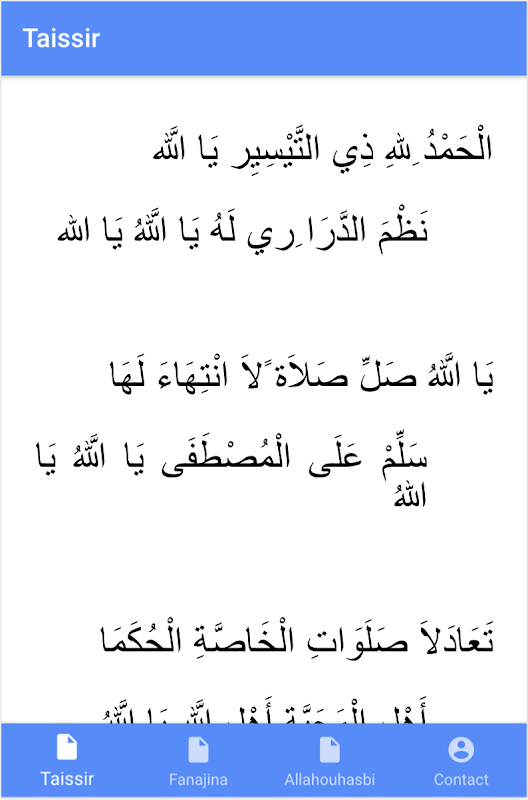 Taissir
الْحَمْدُ ِللهِ ذِي التَّيْسِيِر يَا الله
نَظْمَ الدَّرَا ِري لَهُ يَا اللهُ يَا الله
يَا اللهُ صَلِّ صَلاَة ًلاَ انْتِهَاءَ لَهَا
سَلِّمْ عَلَى الْمُصْطَفَى يَا اللهُ يَا
اللهُ
تَعَادَلاَ صَلَوَاتِ الْخَاصَّةِ الْحُكَمَا
Taissir Fanajina Allahouhasbi Contact